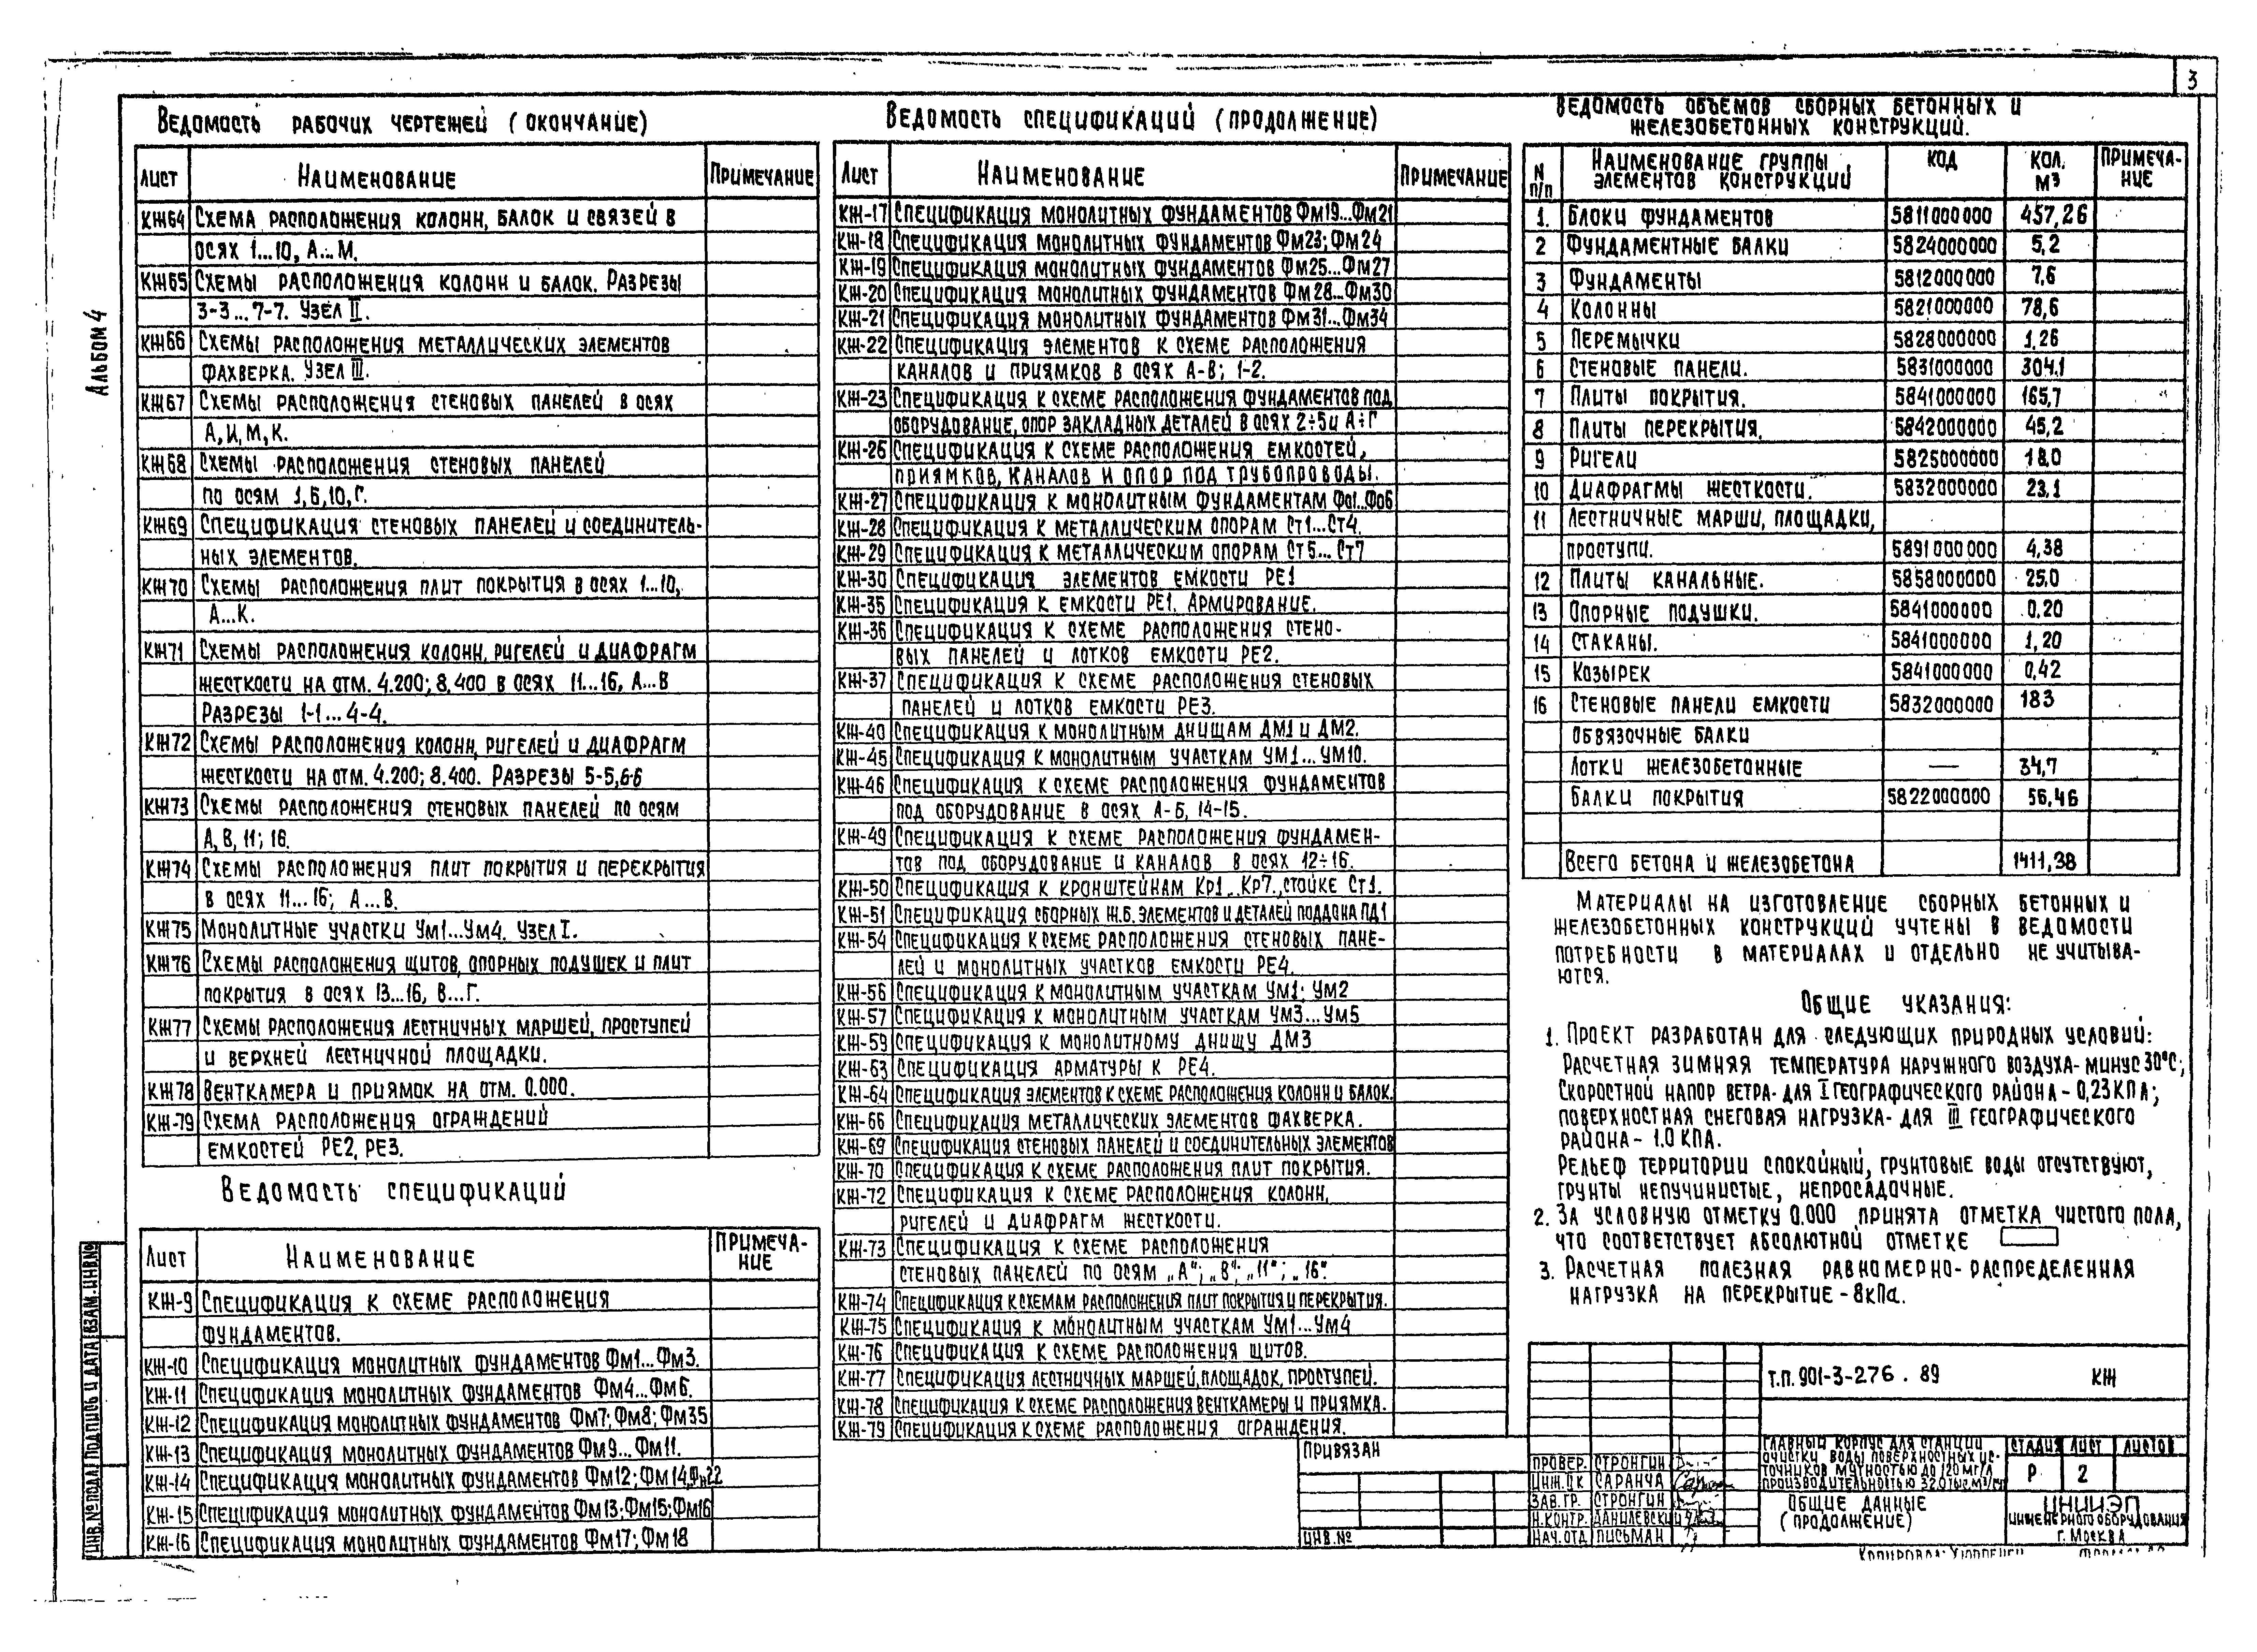 3
Альбом 4
Ведомость рабочих чертежей (окончание)
Лист Наименование Примечание
КЖ64 Схема расположения колонн, балок и связей в
осях 1...10, А...М.
КЖ65 Схемы расположения колонн и балок. Разрезы
3-3...7-7. Узел II.
КЖ66 Схемы расположения металлических элементов
фахверка. Узел III.
КЖ67 Схемы расположения стеновых панелей в осях
А, И, М, К.
КЖ68 Схемы расположения стеновых панелей
по осям 1,6,10,Г.
КЖ69 Спецификация стеновых панелей и соединитель-
ных элементов.
КЖ70 Схемы расположения плит покрытия в осях 1...10,
А...К.
КЖ71 Схемы расположения колонн, ригелей и диафрагм
жесткости на отм. 4.200; 8.400 в осях 11...16, А...В
Разрезы 1-1...4-4.
КЖ72 Схемы расположения колонн, ригелей и диафрагм
жесткости на отм. 4.200; 8.400. Разрезы 5-5,6-6
КЖ73 Схемы расположения стеновых панелей по осям
А, В, 11; 16.
КЖ74 Схемы расположения плит покрытия и перекрытия
в осях 11...16; А...В.
КЖ75 Монолитные участки Ум1...Ум4. Узел I.
КЖ76 Схемы расположения щитов, опорных подушек и плит
покрытия в осях 13...16, В...Г.
КЖ77 Схемы расположения лестничных маршей, проступей
и верхней лестничной площадки.
КЖ78 Венткамера и приямок на отм. 0.000.
КЖ-79 Схема расположения ограждений
емкостей РЕ2, РЕ3.
Ведомость спецификаций
Лист Наименование Примеча-
ние
КЖ-9 Спецификация к схеме расположения
фундаментов.
КЖ-10 Спецификация монолитных фундаментов Фм1...Фм3.
КЖ-11 Спецификация монолитных фундаментов Фм4...Фм6.
КЖ-12 Спецификация монолитных фундаментов Фм7; Фм8; Фм35
КЖ-13 Спецификация монолитных фундаментов Фм9...Фм11.
КЖ-14 Спецификация монолитных фундаментов Фм12; Фм14, Фм22
КЖ-15 Спецификация монолитных фундаментов Фм13; Фм15; Фм16
КЖ-16 Спецификация монолитных фундаментов Фм17; Фм18
Ведомость спецификаций (продолжение)
Лист Наименование Примечание
КЖ-17 Спецификация монолитных фундаментов Фм19...Фм21
КЖ-18 Спецификация монолитных фундаментов Фм23; Фм24
КЖ-19 Спецификация монолитных фундаментов Фм25...Фм27
КЖ-20 Спецификация монолитных фундаментов Фм28...Фм30
КЖ-21 Спецификация монолитных фундаментов Фм31...Фм34
КЖ-22 Спецификация элементов к схеме расположения
каналов и приямков в осях А-В; 1-2.
КЖ-23 Спецификация к схеме расположения фундаментов под
оборудование, опор закладных деталей в осях 2÷5 и А÷Г
КЖ-26 Спецификация к схеме расположения емкостей,
приямков, каналов и опор под трубопроводы.
КЖ-27 Спецификация к монолитным фундаментам Фо1...Фо6
КЖ-28 Спецификация к металлическим опорам Ст1...Ст4.
КЖ-29 Спецификация к металлическим опорам Ст5...Ст7
КЖ-30 Спецификация элементов емкости РЕ1
КЖ-35 Спецификация к емкости РЕ1. Армирование.
КЖ-36 Спецификация к схеме расположения стено-
вых панелей и лотков емкости РЕ2.
КЖ-37 Спецификация к схеме расположения стеновых
панелей и лотков емкости РЕ3.
КЖ-40 Спецификация к монолитным днищам ДМ1 и ДМ2.
КЖ-45 Спецификация к монолитным участкам УМ1...УМ10.
КЖ-46 Спецификация к схеме расположения фундаментов
под оборудование в осях А-Б, 14-15.
КЖ-49 Спецификация к схеме расположения фундамен-
тов под оборудование и каналов в осях 12÷16.
КЖ-50 Спецификация к кронштейнам Кр1...Кр7, стойке Ст1.
КЖ-51 Спецификация сборных ж.б. элементов и деталей поддона ПД1
КЖ-54 Спецификация к схеме расположения стеновых пане-
лей и монолитных участков емкости РЕ4.
КЖ-56 Спецификация к монолитным участкам Ум1; Ум2
КЖ-57 Спецификация к монолитным участкам Ум3...Ум5
КЖ-59 Спецификация к монолитному днищу ДМ3
КЖ-63 Спецификация арматуры к РЕ4.
КЖ-64 Спецификация элементов к схеме расположения колонн и балок.
КЖ-66 Спецификация металлических элементов фахверка.
КЖ-69 Спецификация стеновых панелей и соединительных элементов
КЖ-70 Спецификация к схеме расположения плит покрытия.
КЖ-72 Спецификация к схеме расположения колонн,
ригелей и диафрагм жесткости.
КЖ-73 Спецификация к схеме расположения
стеновых панелей по осям „А"; „В"; „11"; „16"
КЖ-74 Спецификация к схемам расположения плит покрытия и перекрытия.
КЖ-75 Спецификация к монолитным участкам Ум1...Ум4
КЖ-76 Спецификация к схеме расположения щитов.
КЖ-77 Спецификация лестничных маршей, площадок, проступей.
КЖ-78 Спецификация к схеме расположения венткамеры и приямка.
КЖ-79 Спецификация к схеме расположения ограждения.
Ведомость объемов сборных бетонных и
железобетонных конструкций.
N п/п Наименование группы элементов конструкций Код Кол. м³ Примеча-
ние
1. Блоки фундаментов 5811000000 457,26
2 Фундаментные балки 5824000000 5,2
3 Фундаменты 5812000000 7,6
4 Колонны 5821000000 78,6
5 Перемычки 5828000000 1,26
6 Стеновые панели. 5831000000 304,1
7 Плиты покрытия. 5841000000 165,7
8 Плиты перекрытия. 5842000000 45,2
9 Ригели 5825000000 18,0
10 Диафрагмы жесткости. 5832000000 23,1
11 Лестничные марши, площадки,
проступи. 5891000000 4,38
12 Плиты канальные. 5858000000 25,0
13 Опорные подушки. 5841000000 0,20
14 Стаканы. 5841000000 1,20
15 Козырек 5841000000 0,42
16 Стеновые панели емкости 5832000000 183
Обвязочные балки
Лотки железобетонные — 34,7
Балки покрытия 5822000000 56,46
Всего бетона и железобетона 1411,38
Материалы на изготовление сборных бетонных и
железобетонных конструкций учтены в ведомости
потребности в материалах и отдельно не учитыва-
ются.
Общие указания:
1. Проект разработан для следующих природных условий:
Расчетная зимняя температура наружного воздуха- минус 30°С;
Скоростной напор ветра- для I географического района- 0,23 кПа;
поверхностная снеговая нагрузка- для III географического
района- 1.0 кПа.
Рельеф территории спокойный, грунтовые воды отсутствуют,
грунты непучинистые, непросадочные.
2. За условную отметку 0.000 принята отметка чистого пола,
что соответствует абсолютной отметке
3. Расчетная полезная равномерно-распределенная
нагрузка на перекрытие - 8 кПа.
Привязан
Инв.№
Т.п. 901-3-276.89 КЖ
Провер. Стронгин
Инж. IIк Саранча
Зав.гр. Стронгин
Н.контр. Данилевский
Нач.отд Письман
Главный корпус для станции
очистки воды поверхностных ис-
точников мутностью до 120 мг/л
производительностью 32.0 тыс. м³/сут
Стадия Лист Листов
Р 2
Общие данные
(продолжение)
ЦНИИЭП
инженерного оборудования
г. Москва
Инв.№ подл Подпись и дата Взам.инв.№
Копировал: